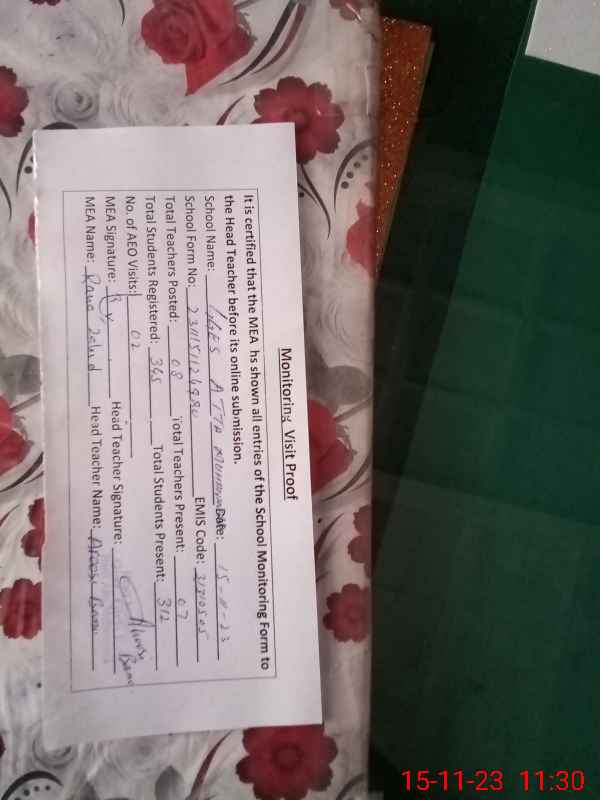 Monitoring Visit Proof
It is certified that the MEA hs shown all entries of the School Monitoring Form to
the Head Teacher before its online submission.
School Name: GGES ATTA Date: 15-11-23
School Form No: EMIS Code: 31210505
Total Teachers Posted: 08 Total Teachers Present: 07
Total Students Registered: 365 Total Students Present: 312
No. of AEO Visits: 02
MEA Signature: Head Teacher Signature:
MEA Name: Rana Zahid Head Teacher Name: Aroosi Bano
15-11-23 11:30